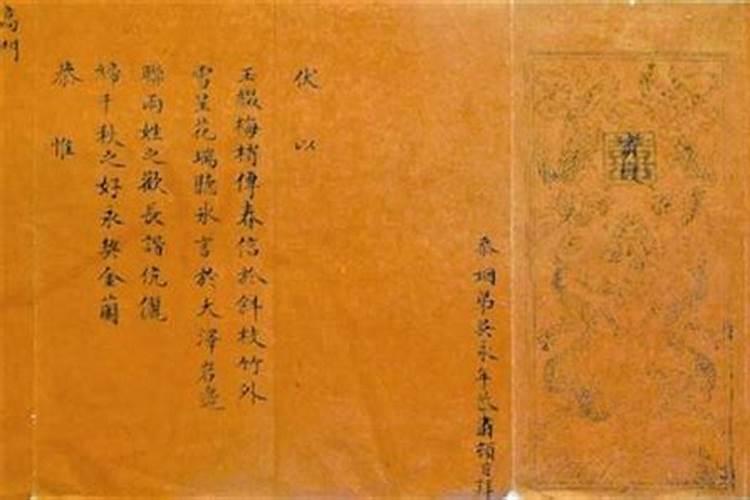 忝姻弟吳永年肅頓首拜
伏以
玉綴梅梢傳春信於斜枝竹外
雪呈花瑞聽冰言於大澤岩邊
聯兩姓之歡長諧伉儷
締千秋之好永契金蘭
恭惟
高門